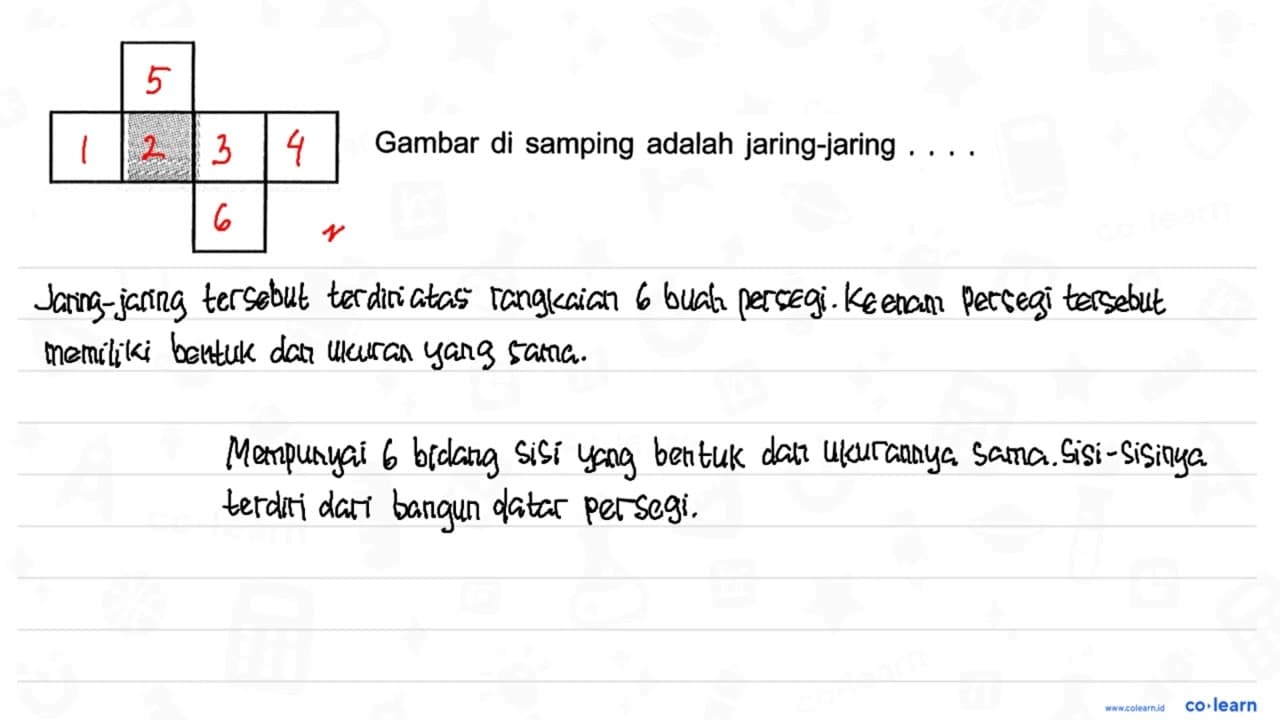 5
1 2 3 4
6
Gambar di samping adalah jaring-jaring . . . .
Jaring-jaring tersebut terdiri atas rangkaian 6 buah persegi. Keenam persegi tersebut
memiliki bentuk dan ukuran yang sama.
Mempunyai 6 bidang sisi yang bentuk dan ukurannya sama. Sisi-sisinya
terdiri dari bangun datar persegi.
www.colearn.id co•learn